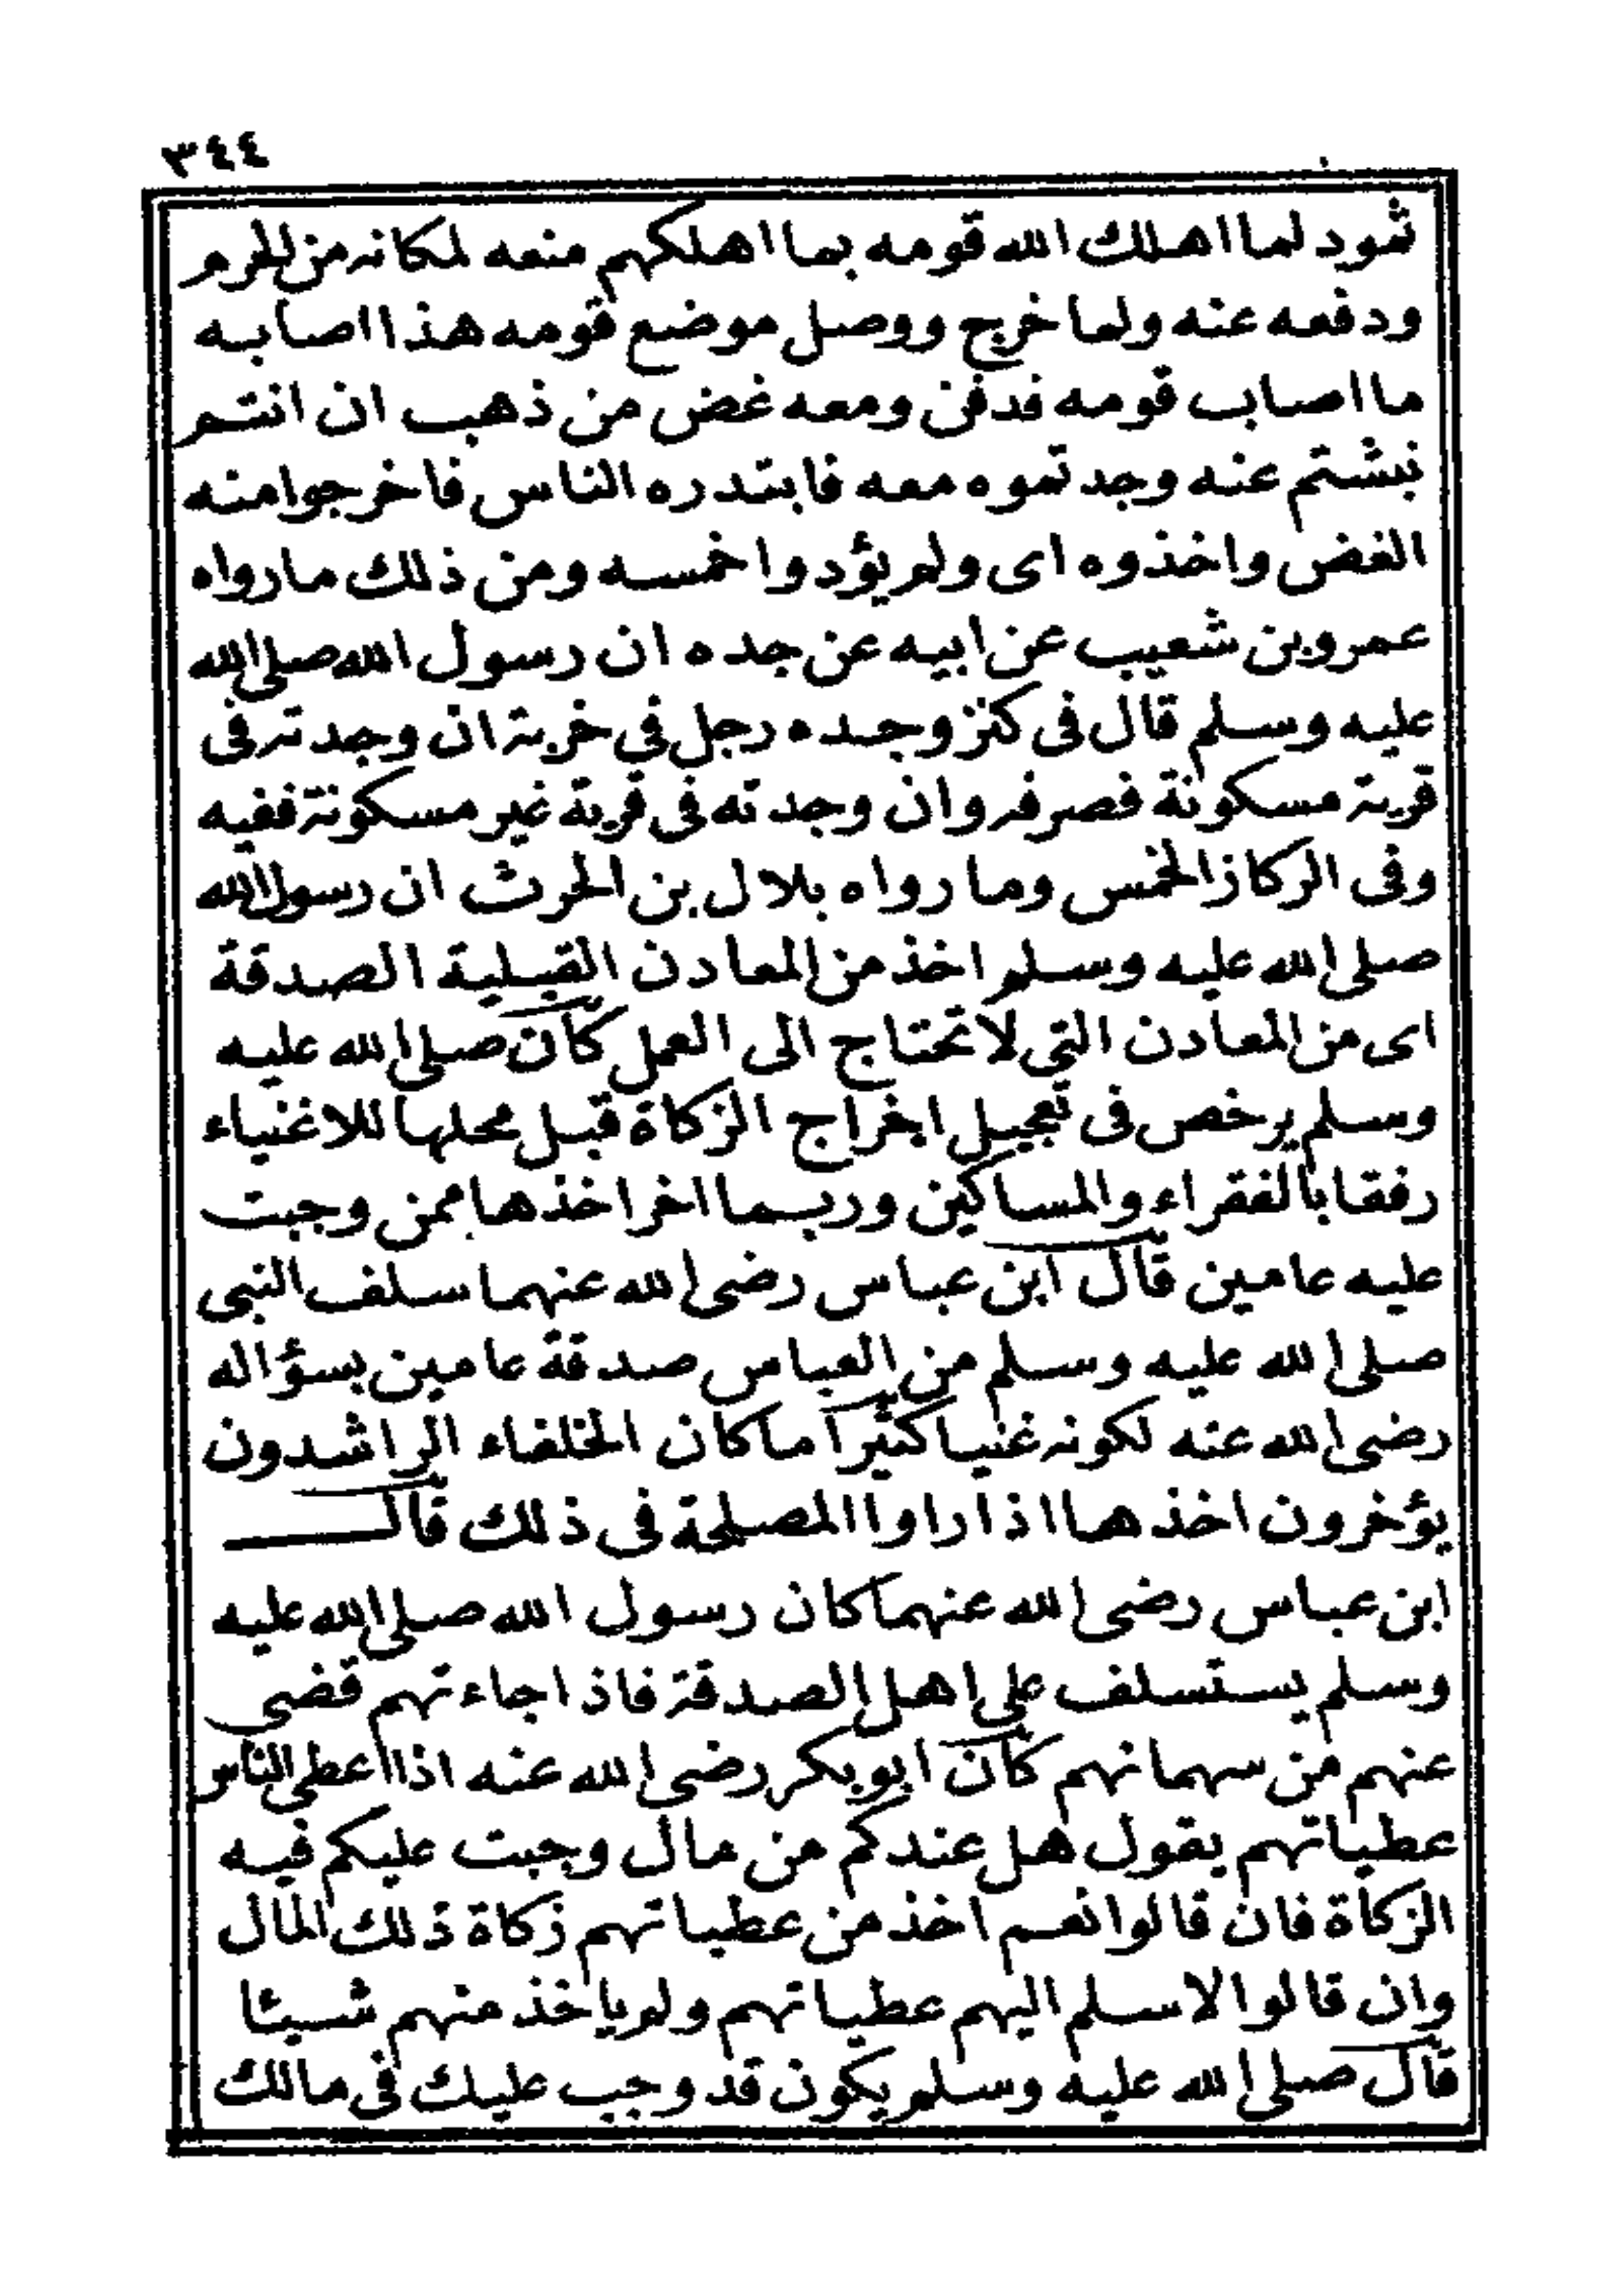 ٣٤٤
ثمود لما اهلك الله قومه بما اهلكهم منعه لمكانه من الحرم
ودفعه عنه ولما خرج ووصل موضع قومه هذا اصابه
ما اصاب قومه فدفن ومعه غض من ذهب ان انتم
نبشتم عنه وجدتموه معه فابتدره الناس فاخرجوا منه
الغض واخذوه اى ولم يؤدوا خمسه ومن ذلك مارواه
عمرو بن شعيب عن ابيه عن جده ان رسول الله صلى الله
عليه وسلم قال فى كنز وجده رجل في خربة ان وجدته فى
قرية مسكونة فصرفه وان وجدته فى قرية غير مسكونة ففيه
وفى الركاز الخمس وما رواه بلال بن الحرث ان رسول الله
صلى الله عليه وسلم اخذ من المعادن القبلية الصدقة
اى من المعادن التي لا تحتاج الى العمل كان صلى الله عليه
وسلم يرخص فى تعجيل اخراج الزكاة قبل محلها للاغنياء
رفقا بالفقراء والمساكين وربما اخر اخذها ممن وجبت
عليه عامين قال ابن عباس رضى الله عنهما سلف النبى
صلى الله عليه وسلم من العباس صدقة عامين بسؤاله
رضى الله عنه لكونه غنيا كثيرا ما كان الخلفاء الراشدون
يؤخرون اخذها اذا راوا المصلحة فى ذلك قال
ابن عباس رضى الله عنهما كان رسول الله صلى الله عليه
وسلم يستسلف على اهل الصدقة فاذا جاءتهم قضى
عنهم من سهمانهم كان ابو بكر رضى الله عنه اذا اعطى الناس
عطياتهم يقول هل عندكم من مال وجبت عليكم فيه
الزكاة فان قالوا نعم اخذ من عطياتهم زكاة ذلك المال
وان قالوا لا سلم اليهم عطياتهم ولم ياخذ منهم شيئا
قال صلى الله عليه وسلم يكون قد وجب عليك فى مالك